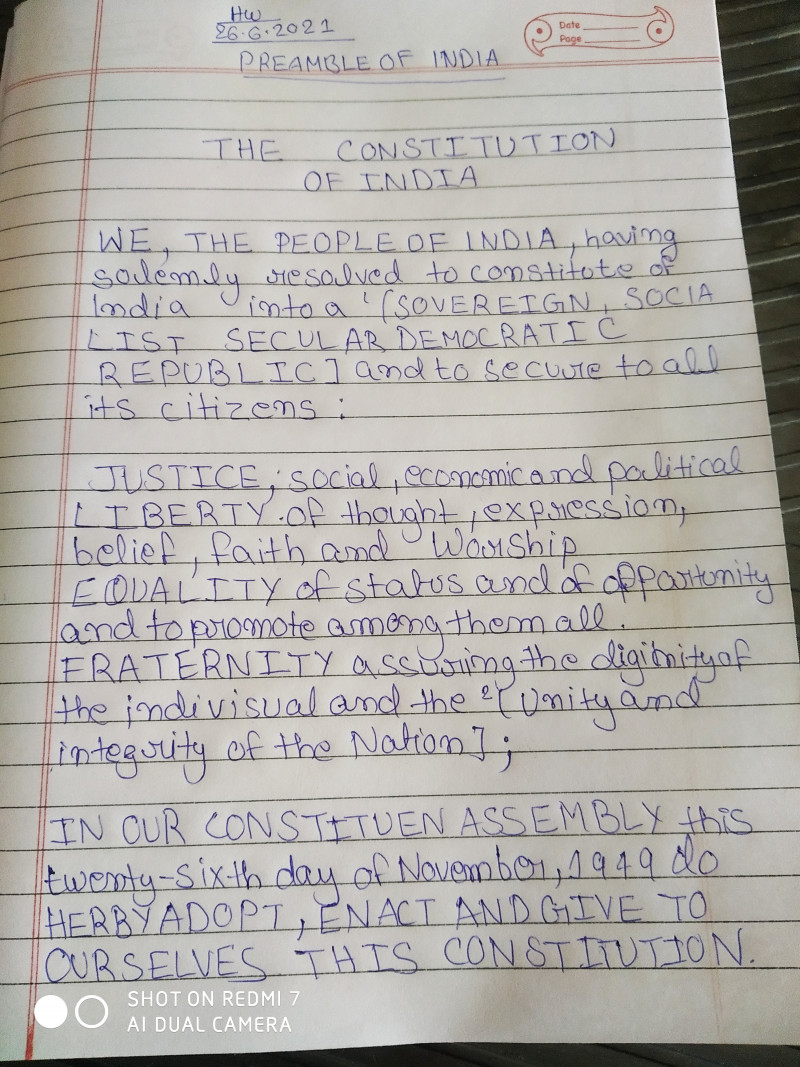 HW
26.6.2021
Date
Page
PREAMBLE OF INDIA
THE CONSTITUTION
OF INDIA
WE, THE PEOPLE OF INDIA, having
solemly resolved to constitute of
India into a ¹[SOVEREIGN, SOCIA
LIST SECULAR DEMOCRATIC
REPUBLIC] and to secure to all
its citizens :
JUSTICE, social, economic and political
LIBERTY of thought, expression,
belief, faith and Worship
EQUALITY of status and of opportunity
and to promote among them all.
FRATERNITY assuring the digitnity of
the indivisual and the ²[Unity and
integrity of the Nation];
IN OUR CONSTITUEN ASSEMBLY this
twenty-sixth day of November, 1949 do
HERBY ADOPT, ENACT AND GIVE TO
OURSELVES THIS CONSTITUTION.
SHOT ON REDMI 7
AI DUAL CAMERA